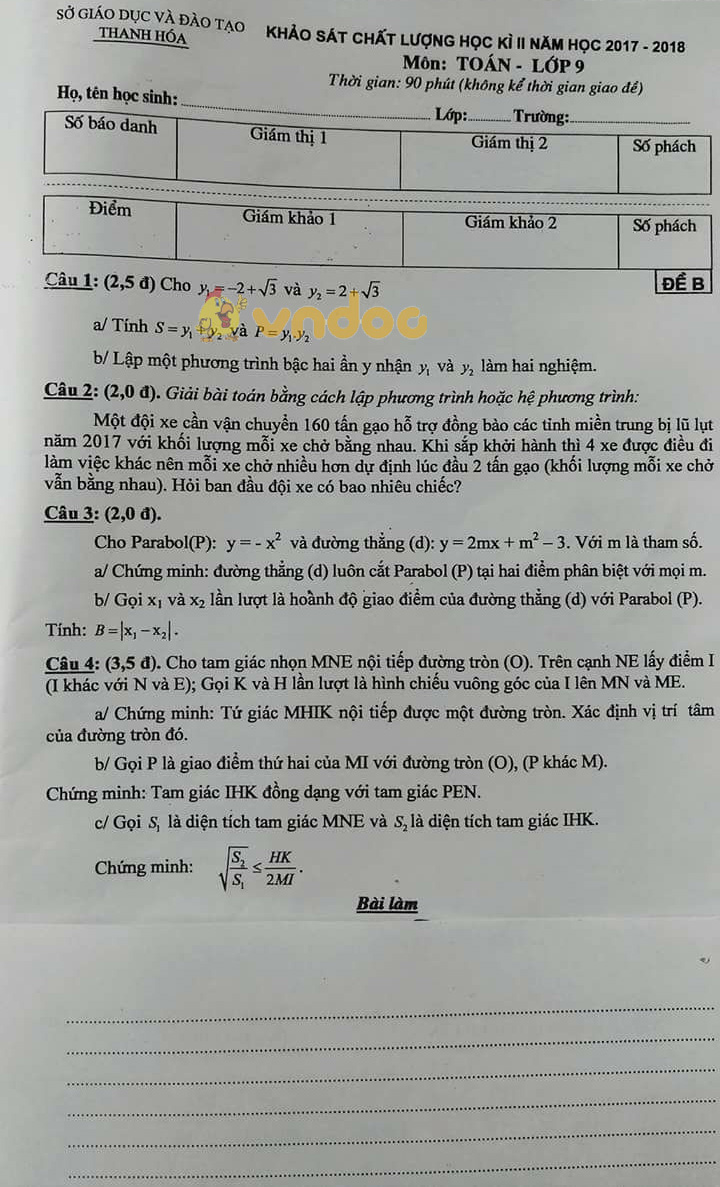 SỞ GIÁO DỤC VÀ ĐÀO TẠO
THANH HÓA
KHẢO SÁT CHẤT LƯỢNG HỌC KÌ II NĂM HỌC 2017 - 2018
Môn: TOÁN - LỚP 9
Thời gian: 90 phút (không kể thời gian giao đề)
Họ, tên học sinh: Lớp: Trường:
Số báo danh Giám thị 1 Giám thị 2 Số phách
Điểm Giám khảo 1 Giám khảo 2 Số phách
ĐỀ B
Câu 1: (2,5 đ) Cho y₁ = −2+√3 và y₂ = 2+√3
vndoc
a/ Tính S = y₁ + y₂ và P = y₁.y₂
b/ Lập một phương trình bậc hai ẩn y nhận y₁ và y₂ làm hai nghiệm.
Câu 2: (2,0 đ). Giải bài toán bằng cách lập phương trình hoặc hệ phương trình:
Một đội xe cần vận chuyển 160 tấn gạo hỗ trợ đồng bào các tỉnh miền trung bị lũ lụt
năm 2017 với khối lượng mỗi xe chở bằng nhau. Khi sắp khởi hành thì 4 xe được điều đi
làm việc khác nên mỗi xe chở nhiều hơn dự định lúc đầu 2 tấn gạo (khối lượng mỗi xe chở
vẫn bằng nhau). Hỏi ban đầu đội xe có bao nhiêu chiếc?
Câu 3: (2,0 đ).
Cho Parabol(P): y = - x² và đường thẳng (d): y = 2mx + m² – 3. Với m là tham số.
a/ Chứng minh: đường thẳng (d) luôn cắt Parabol (P) tại hai điểm phân biệt với mọi m.
b/ Gọi x₁ và x₂ lần lượt là hoành độ giao điểm của đường thẳng (d) với Parabol (P).
Tính: B = |x₁ − x₂|.
Câu 4: (3,5 đ). Cho tam giác nhọn MNE nội tiếp đường tròn (O). Trên cạnh NE lấy điểm I
(I khác với N và E); Gọi K và H lần lượt là hình chiếu vuông góc của I lên MN và ME.
a/ Chứng minh: Tứ giác MHIK nội tiếp được một đường tròn. Xác định vị trí tâm
của đường tròn đó.
b/ Gọi P là giao điểm thứ hai của MI với đường tròn (O), (P khác M).
Chứng minh: Tam giác IHK đồng dạng với tam giác PEN.
c/ Gọi S₁ là diện tích tam giác MNE và S₂ là diện tích tam giác IHK.
Chứng minh: √(S₂/S₁) ≤ HK/2MI.
Bài làm